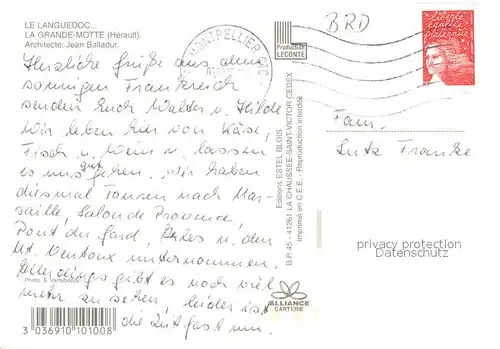 LE LANGUEDOC...
LA GRANDE-MOTTE (Hérault)
Architecte: Jean Balladur.
MONTPELLIER
Production
LECONTE
BRD
liberté
égalité
fraternité
Herzliche Grüße aus dem
sonnigen Frankreich
senden Euch Walter u. Hilde
Wir leben hier von Käse,
Fisch u. Wein u. lassen
es uns gut gehen. Wir haben
diesmal Touren nach Mar-
saille, Salon de Provence
Pont du Gard, Arles u. den
Mt. Ventoux unternommen.
Allerdings gibt es noch viel
mehr zu sehen, leider ist
die Zeit fast um.
Fam.
Lutz Franke
Editions ESTEL-BLOIS
B.P. 45 - 41261 LA CHAUSSEE-SAINT-VICTOR CEDEX
Imprimé en C.E.E. - Reproduction interdite
privacy protection
Datenschutz
Photo S. Vartabedian
3 036910 101008
ALLIANCE
CARTERIE